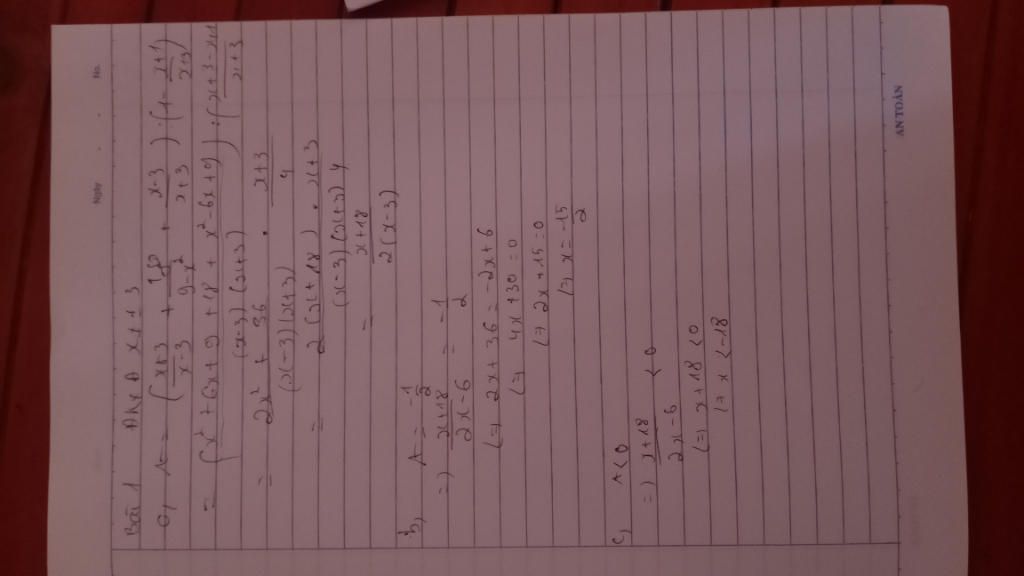 Ngày . . No.
Bài 1 ĐKXĐ x ≠ ± 3
a, A = (x+3/x-3 + 18/9-x² + x-3/x+3) : (1 - x+1/x+3)
= (x² + 6x + 9 + 18 + x² - 6x + 9 / (x-3)(x+3)) : (x+3-x+1 / x+3)
= 2x² + 36 / (x-3)(x+3) . x+3 / 4
= 2(x+18) . x+3 / (x-3)(x+3) 4
= x+18 / 2(x-3)
b, A = -1/2
=) x+18 / 2x-6 = -1/2
(=) 2x + 36 = -2x + 6
(=) 4x + 30 = 0
(=) 2x + 15 = 0
(=) x = -15/2
c, A < 0
=) x+18 / 2x-6 < 0
(=) x + 18 < 0
(=) x < -18
AN TOÀN